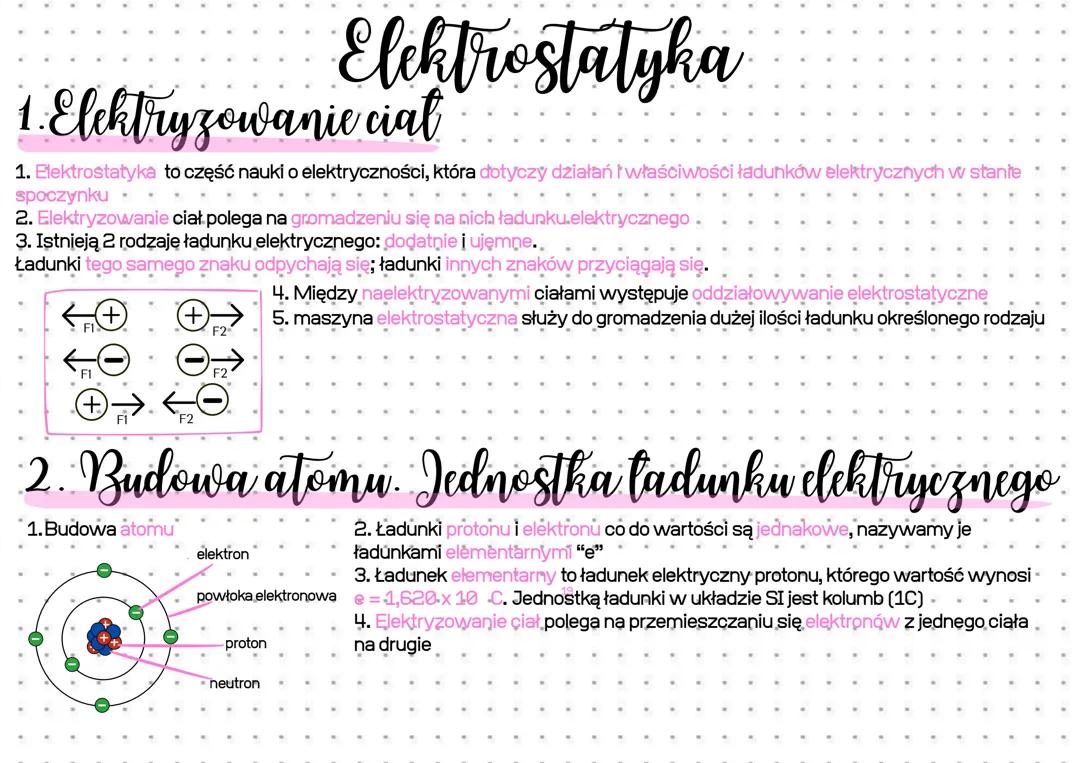 Elektrostatyka
1. Elektryzowanie ciał
1. Elektrostatyka to część nauki o elektryczności, która dotyczy działań i właściwości ładunków elektrycznych w stanie
spoczynku
2. Elektryzowanie ciał polega na gromadzeniu się na nich ładunku elektrycznego
3. Istnieją 2 rodzaje ładunku elektrycznego: dodatnie i ujemne.
Ładunki tego samego znaku odpychają się; ładunki innych znaków przyciągają się.
4. Między naelektryzowanymi ciałami występuje oddziaływywanie elektrostatyczne
5. maszyna elektrostatyczna służy do gromadzenia dużej ilości ładunku określonego rodzaju
F1 + + F2
F1 − − F2
+ F1 F2 −
2. Budowa atomu. Jednostka ładunku elektrycznego
1. Budowa atomu
elektron
powłoka elektronowa
proton
neutron
2. Ładunki protonu i elektronu co do wartości są jednakowe, nazywamy je
ładunkami elementarnymi “e”
3. Ładunek elementarny to ładunek elektryczny protonu, którego wartość wynosi
e = 1,620 x 10 ¹⁹ C. Jednostką ładunki w układzie SI jest kolumb (1C)
4. Elektryzowanie ciał polega na przemieszczaniu się elektronów z jednego ciała
na drugie